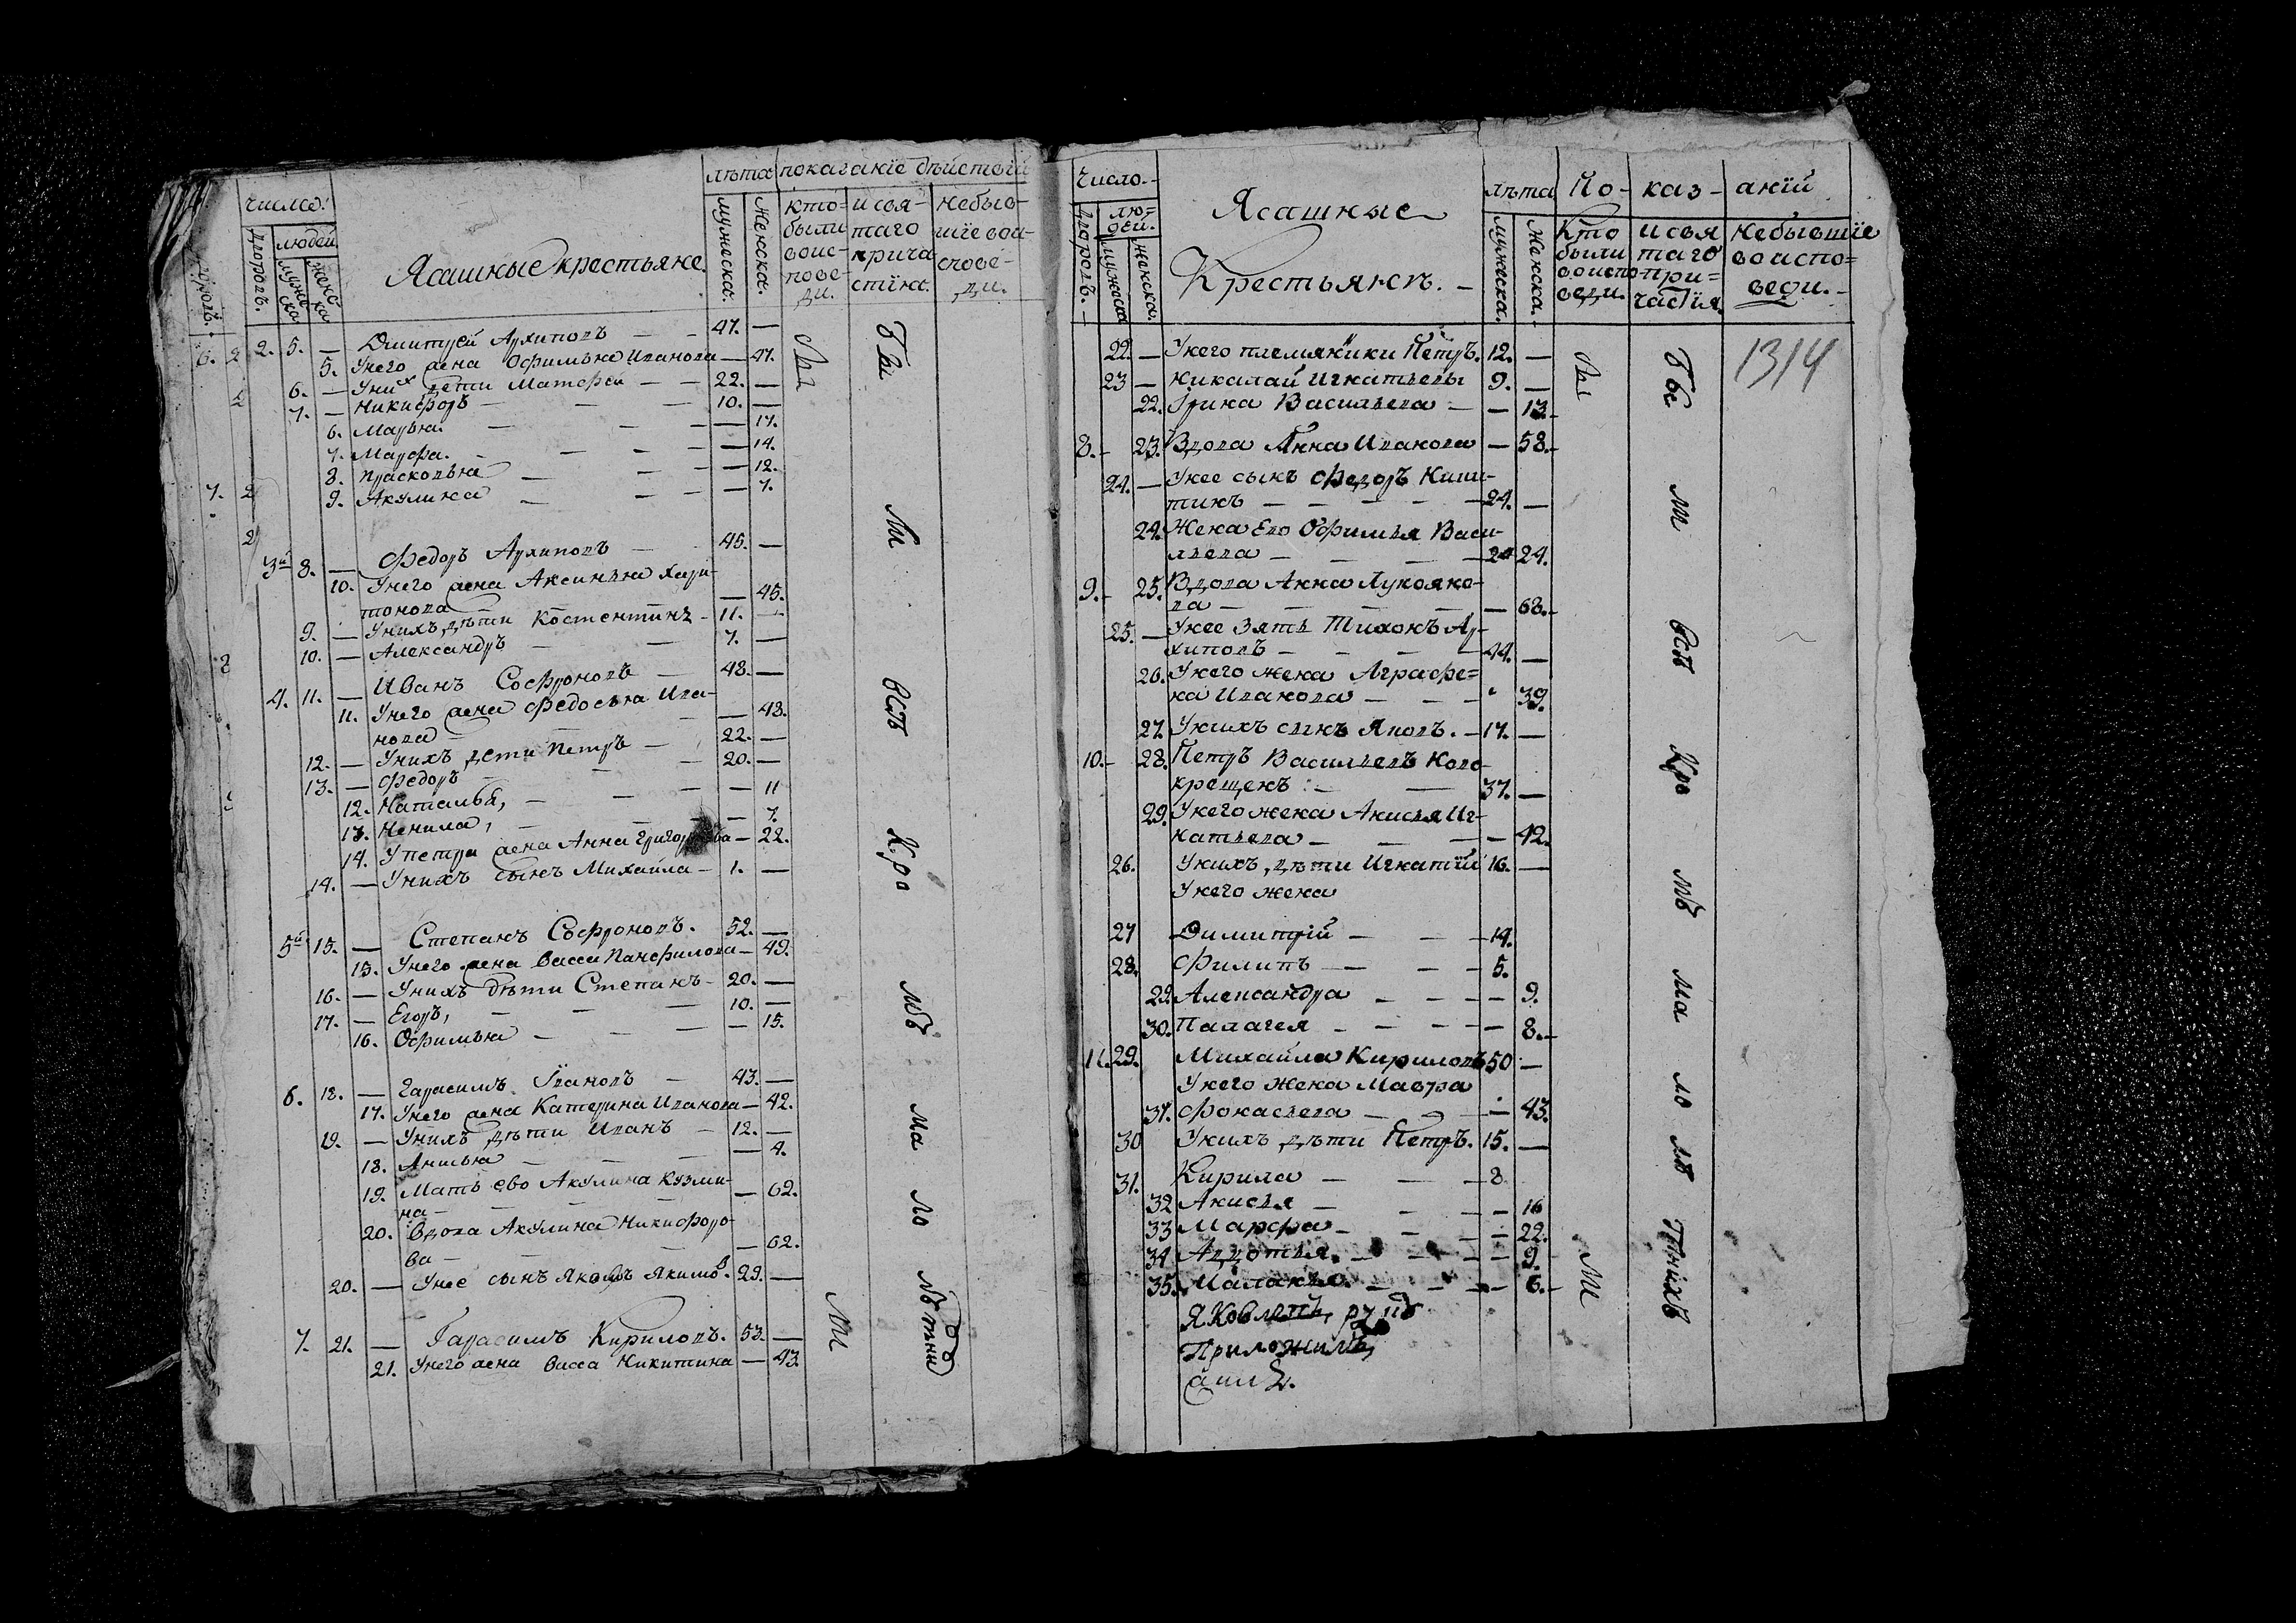 число.
лѣта показанїе дѣйствїй
дворовъ.
людей
мужеска
женска
Ясашные крестьяне.
мужеска.
женска.
кто были во исповеди.
и свята го причастїя.
не бывшїе во исповеди.
2. 5. — Дмитрей Архиповъ — — 47. —
5. У него жена Офимья Иванова — 47.
6. — У них дети Матфей — — 22. —
7. — Никифоръ — — — 10. —
6. Марья. — — — — 17.
7. Марфа. — — — — 14.
8. Прасковья — — — 12.
9. Акулина — — — — 7.
3й 8. — Федоръ Архиповъ — 45. —
10. У него жена Аксинья Хари-
тонова — 45.
9. — У нихъ дѣти Костентинъ — 11. —
10. — Александръ — — 7. —
4. 11. — Иванъ Софроновъ — 48. —
11. У него жена Федосья Ива-
нова — — 48.
12. — У нихъ дети Петръ — 22. —
13. — Федоръ — — — 20. —
12. Наталья, — — — 11
13. Ненила, — — — 7.
14. У Петра жена Анна Григорьева — 22.
14. — У нихъ сынъ Михайла — 1. —
5й 15. — Степанъ Софроновъ. 52. —
15. У него жена Васса Панфилова — 49.
16. — У нихъ дѣти Степанъ — 20. —
17. — Егоръ, — — — 10. —
16. Офимья — — — 15.
6. 18. — Гарасимъ Ивановъ — 43. —
17. У него жена Катерина Иванова — 42.
19. — У нихъ дѣти Иванъ — 12. —
18. Анисья — — — 4.
19. Мать ево Акулина Кузми-
на — — — 62.
20. Вдова Акулина Никифоро-
ва — — — 62.
20. — У нее сынъ Яковъ Якимов. 29. —
7. 21. — Гарасимъ Кириловъ. 53. —
21. У него жена Васса Никитина — 43.
Бы
ли
всѣ
Кро
мѣ
ма
ло
лѣтнихъ
число.
дворовъ.
людей.
мужеска
женска.
Ясашные
Крестьянѣ. —
лѣта По- каз- анїй
мужеска.
женска.
Кто были во исповеди.
и свя таго при= частїя.
небывшїе во испо= веди. —
1314
22. — У него племянники Петръ. 12. —
23 — Николай Игнатьевы 9. —
22. Ирина Васильева — — 13.
8. — 23. Вдова Анна Иванова — 58. —
24. — У нее сынъ Федоръ Ники-
тинъ — — — — 24. —
24. Жена Ево Офимья Васи-
льева — — — — 24.
9. — 25. Вдова Анна Лукояно-
ва — — — — 68. —
25. — У нее зять Тихонъ Ар-
хиповъ — — — 44. —
26. У него жена Аграфе=
на Иванова — — — 39.
27. У нихъ сынъ Яковъ. — 17. —
10. — 28. Петръ Васильевъ Ново-
крещенъ : — — 37. —
29. У него жена Анисья Иг-
натьева — — — 42.
26. У нихъ дѣти Игнатїй 16. —
У него жена
27 Димитрїй — — — 14.
28. Филипъ — — — 5.
29. Александра — — — 9.
30. Палагея — — — — 8. —
11. 29. Михайла Кириловъ 50 —
У него жена Мавра
31. Фокасьева — — — 43.
30 У нихъ дѣти Петръ. 15. —
31. Кирила — — — 8.
32 Анисья — — — 16
33 Марфа — — — 22.
34 Авдотья. — — — 9.
35. Маланья. — — — 6. —
Бы
ли
всѣ
Кро
мѣ
ма
ло
лѣ
тнихъ
Яковлевъ, руку
Приложилъ,